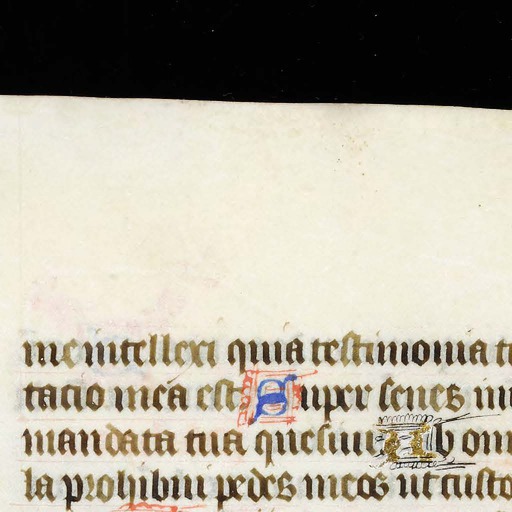 me intellexi quia testimonia t
tacio mea est Super senes int
mandata tua quesiui Ab om
la prohibui pedes meos ut custo